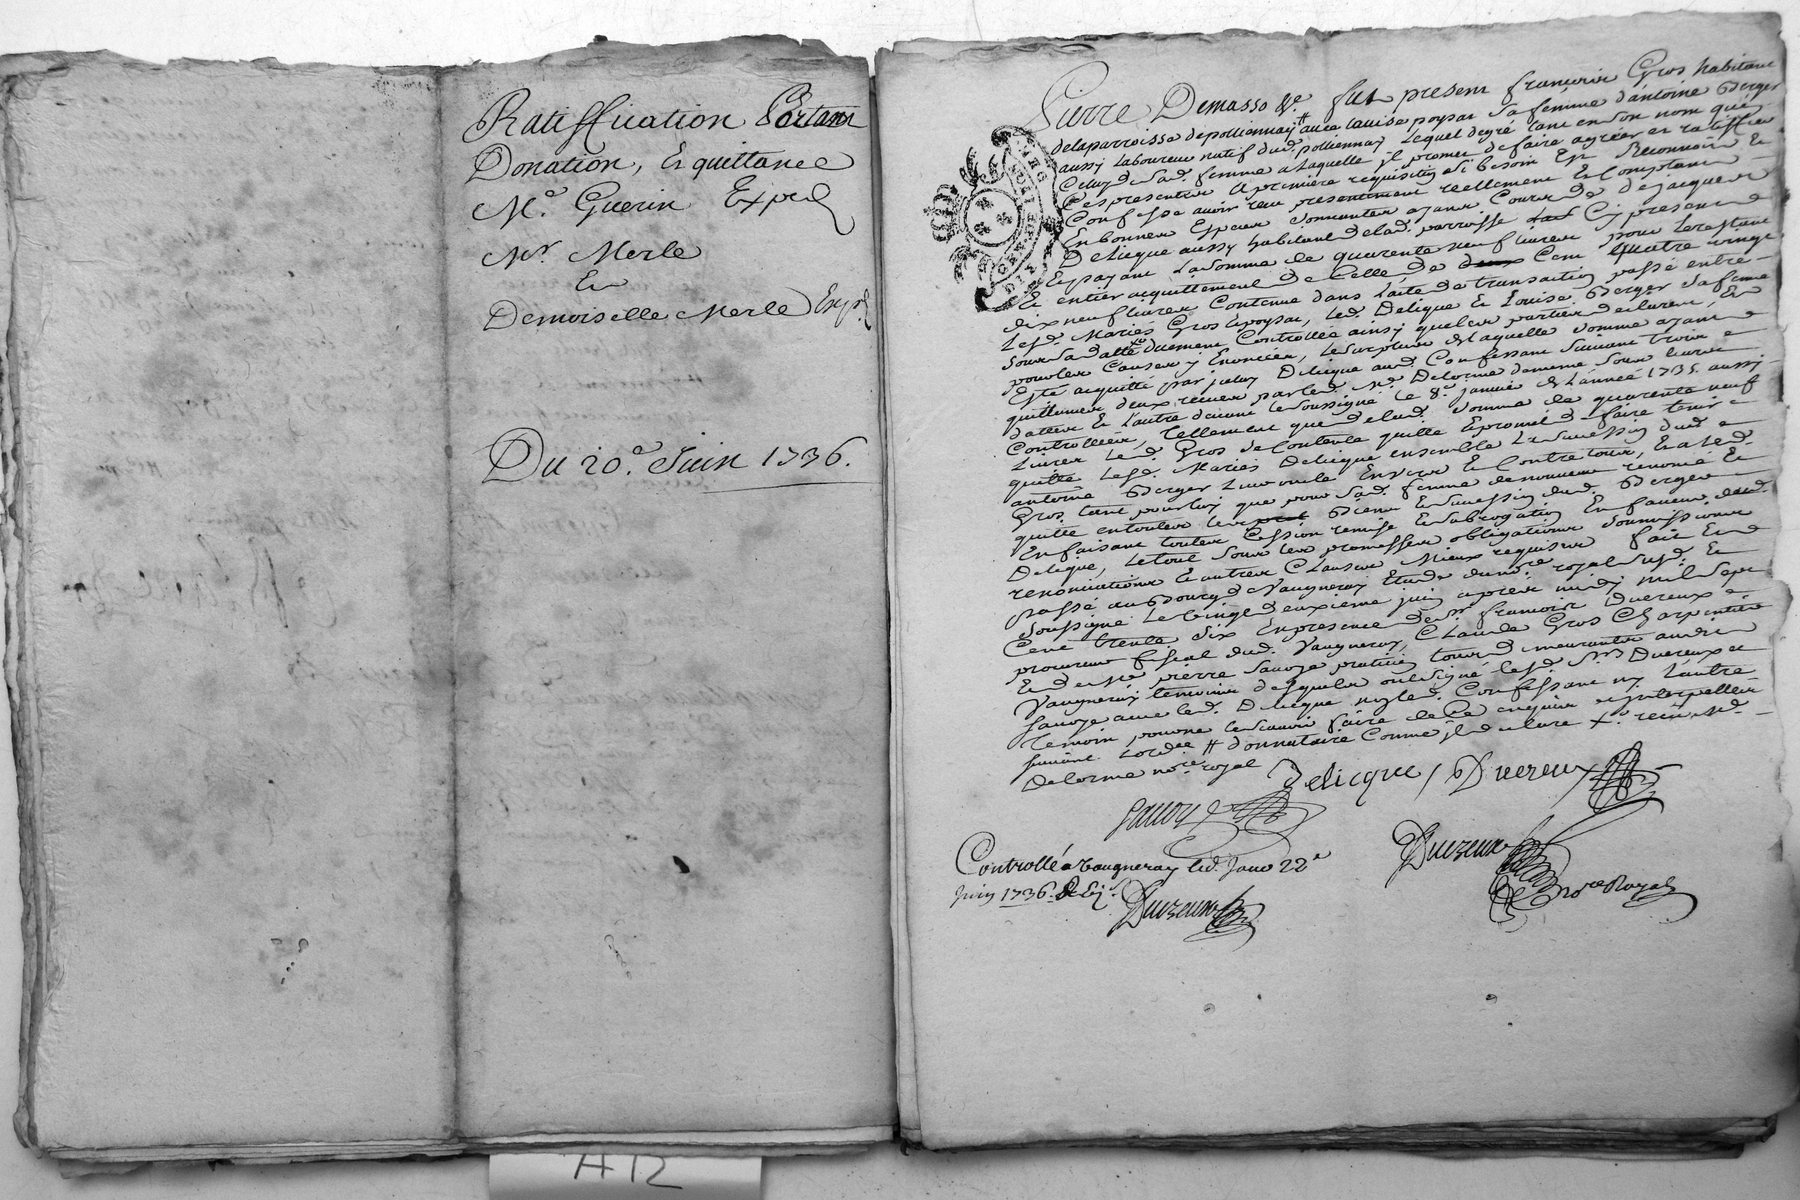 Ratiffication Portant
Donation, Et quittance
Me. Guerin Exped
Mr Merle
Et
Demoiselle Merle Exp.
Du 20e. Juin 1736.
Pierre Demasso &c. fut present françois Gros habitant
delaparroisse depollionnay avec Louise poysat sa femme d'antoine Berger
aussy Laboureur natif dud. pollionnay Lequel degré tant en son nom que
Celuy de sad. femme a Laquelle jl promet de faire agréer et ratiffier
Ces presentes a premiere requisition si besoin Est Reconnoit Et
Confesse avoir reçu presentement reellement Et Comptant
En bonnes Especes sonnantes ayant Cours de jacques
Delicque aussy habitant delad. parroisse Cy present
Et payant La somme de quarente neuf livres pour Le restant
Et entier acquittement de Celle de deux Cent quatre vingt
dix neuf livres Contenue dans L'acte de transaction passé entre
Lesd. Mariés Gros et poysat, Led. Delique Et Louise Berger sa femme
sous sa datte duement Controllée ainsy que les parties declarent, Et
pour les Causes y Enoncées, Le surplus de laquelle somme ayant
Esté acquitté par jceluy Delicque aud. Confessant suivant trois
quittances deux reçues par led. Me. Delorme d'ameme sous leurs
dattes Et L'autre devant le soussigné le 8e. janvier de L'année 1735. aussy
Controllées, Tellement que de lad. somme de quarente neuf
livres Led. Gros se Contente quitte Et promet faire tenir
quitte Lesd. Mariés Delicque ensemble La succession dud.
antoine Berger Envers Et Contre tous, Et a led.
Gros tant pour luy que pour sad. femme de nouveau renoncé Et
quitté en toutes les Biens Et succession dud. Berger
En faisant toutes Cession remise Et subrogation En faveur dud.
Delique, Le tout sous les promesses obligations soumissions
renonciations Et autres Clauses Mieux requises fait Et
passé au Bourg de Vaugneray Etude dudnore. royal susd. Et
soussigné Le vingt deuxieme juin apres midy mil sept
Cent trente six En presence de Sr. françois Duereux
procureur fiscal dud. Vaugneray, Claude Gros Charpentier
Et de Me pierre Savoye praticien tous demeurants audit
Vaugneray temoins desquels ont signé lesd. Srs Duereux et
Savoye avec led. Delicque non led. Confessant ny L'autre
temoin pour ne le scavoir faire de Ce enquis et jnterpellés
suivant Lordce # donnataire Comme jl declare +. reçu Me.
delorme nore. royal
Delicque Duereux
Savoye
Controllé a Vaugneray led. Jour 22e
Juin 1736.
nore Royal